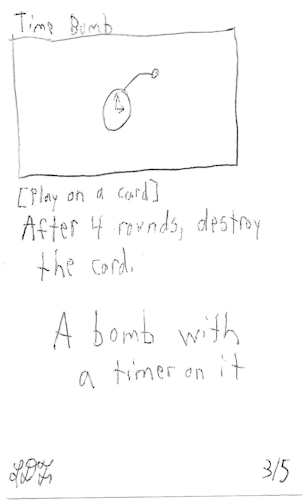 Time Bomb
[Play on a card]
After 4 rounds, destroy
the card.
A bomb with
a timer on it
3/5